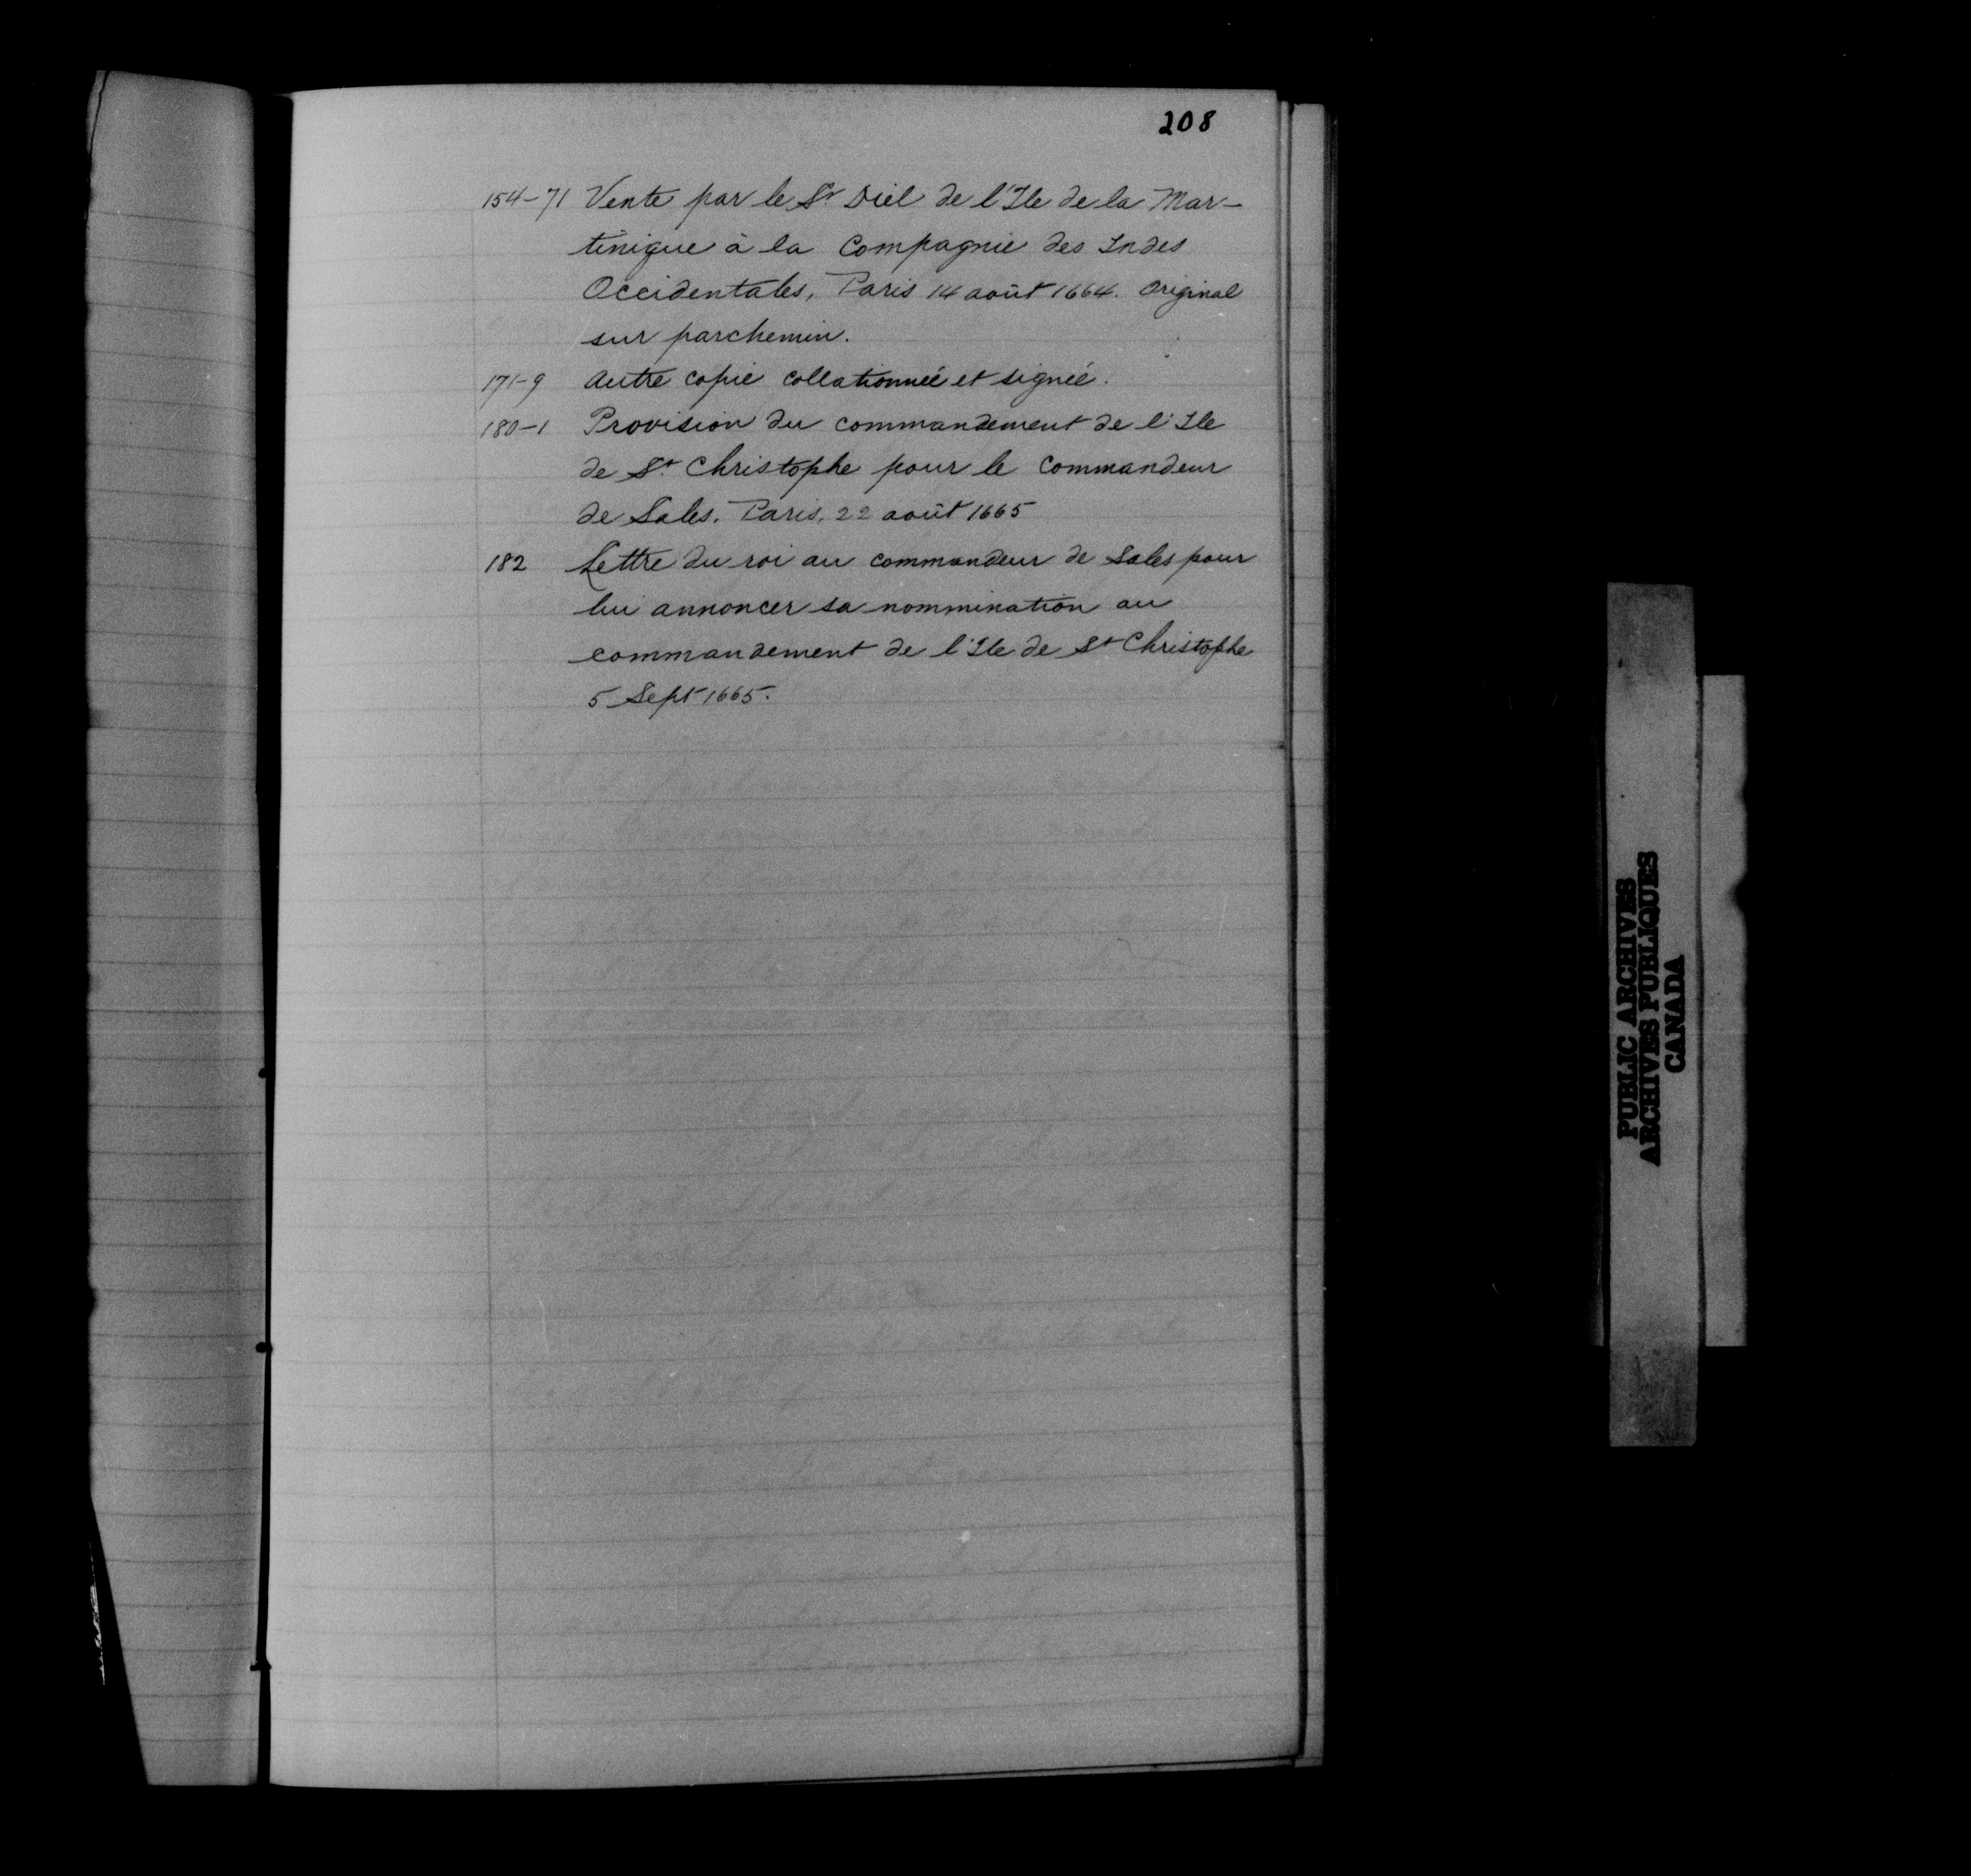 208
154-71 Vente par le Sr Diel de l'Ile de la Mar-
tinique à la Compagnie des Indes
Occidentales, Paris 14 août 1664. Original
sur parchemin.
171-9 Autre copie collationnée et signée.
180-1 Provision du commandement de l'Ile
de St Christophe pour le Commandeur
de Sales. Paris, 22 août 1665
182 Lettre du roi au commandeur de Sales pour
lui annoncer sa nommination au
commandement de l'Ile de St Christophe
5 Sept 1665.
PUBLIC ARCHIVES
ARCHIVES PUBLIQUES
CANADA